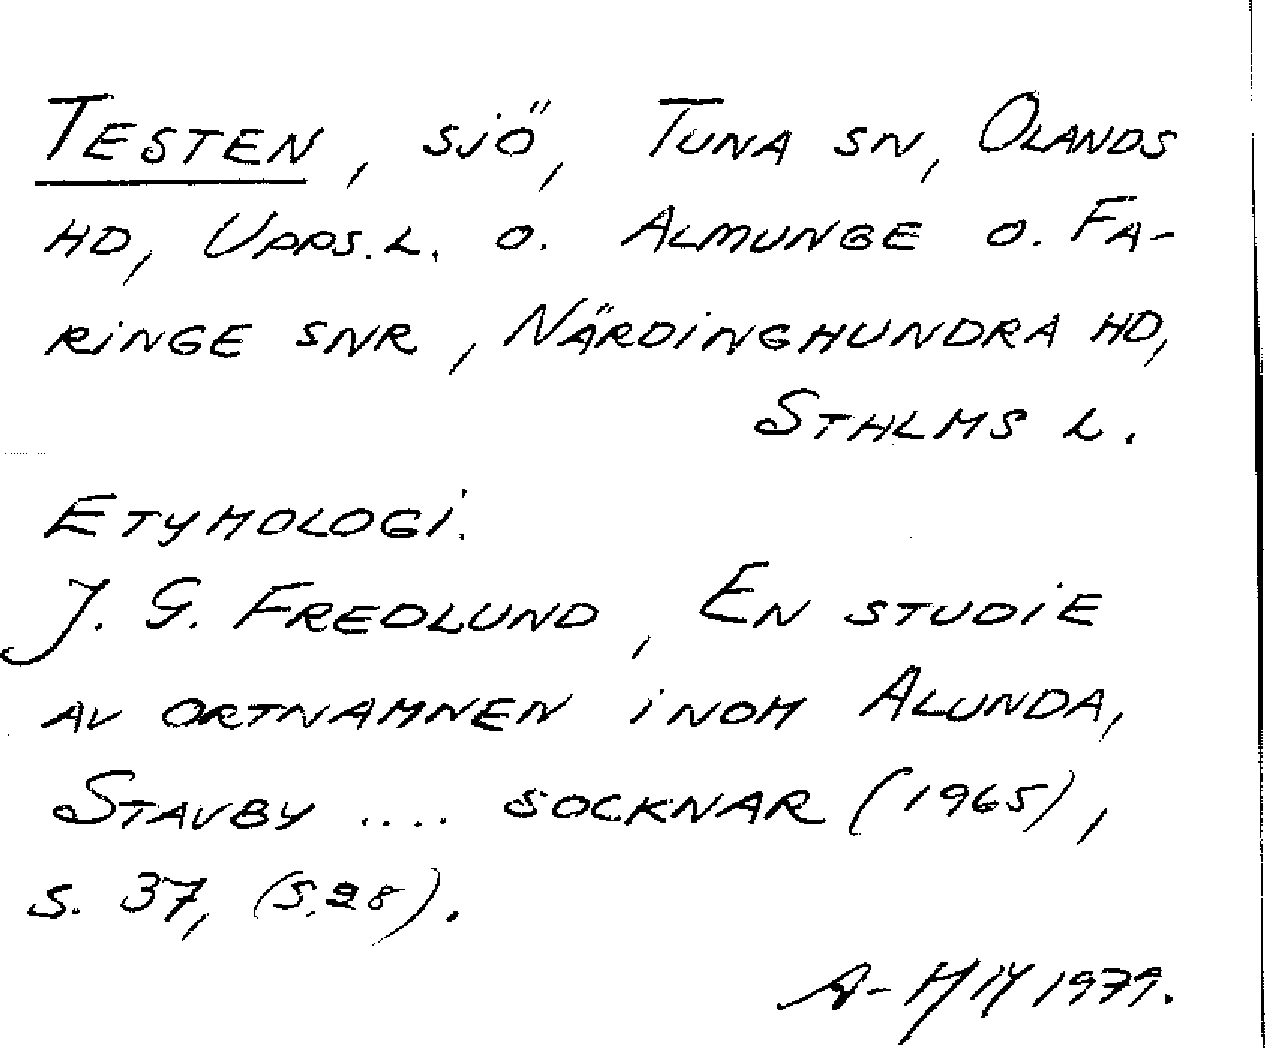 TESTEN, SJÖ, TUNA SN, OLANDS
HD, UPPS. L. O. ALMUNGE O. FA-
RINGE SNR, NÄRDINGHUNDRA HD,
STHLMS L.
ETYMOLOGI.
J. G. FREDLUND, EN STUDIE
AV ORTNAMNEN INOM ALUNDA,
STAVBY .... SOCKNAR (1965),
S. 37, (S. 28).
1979.